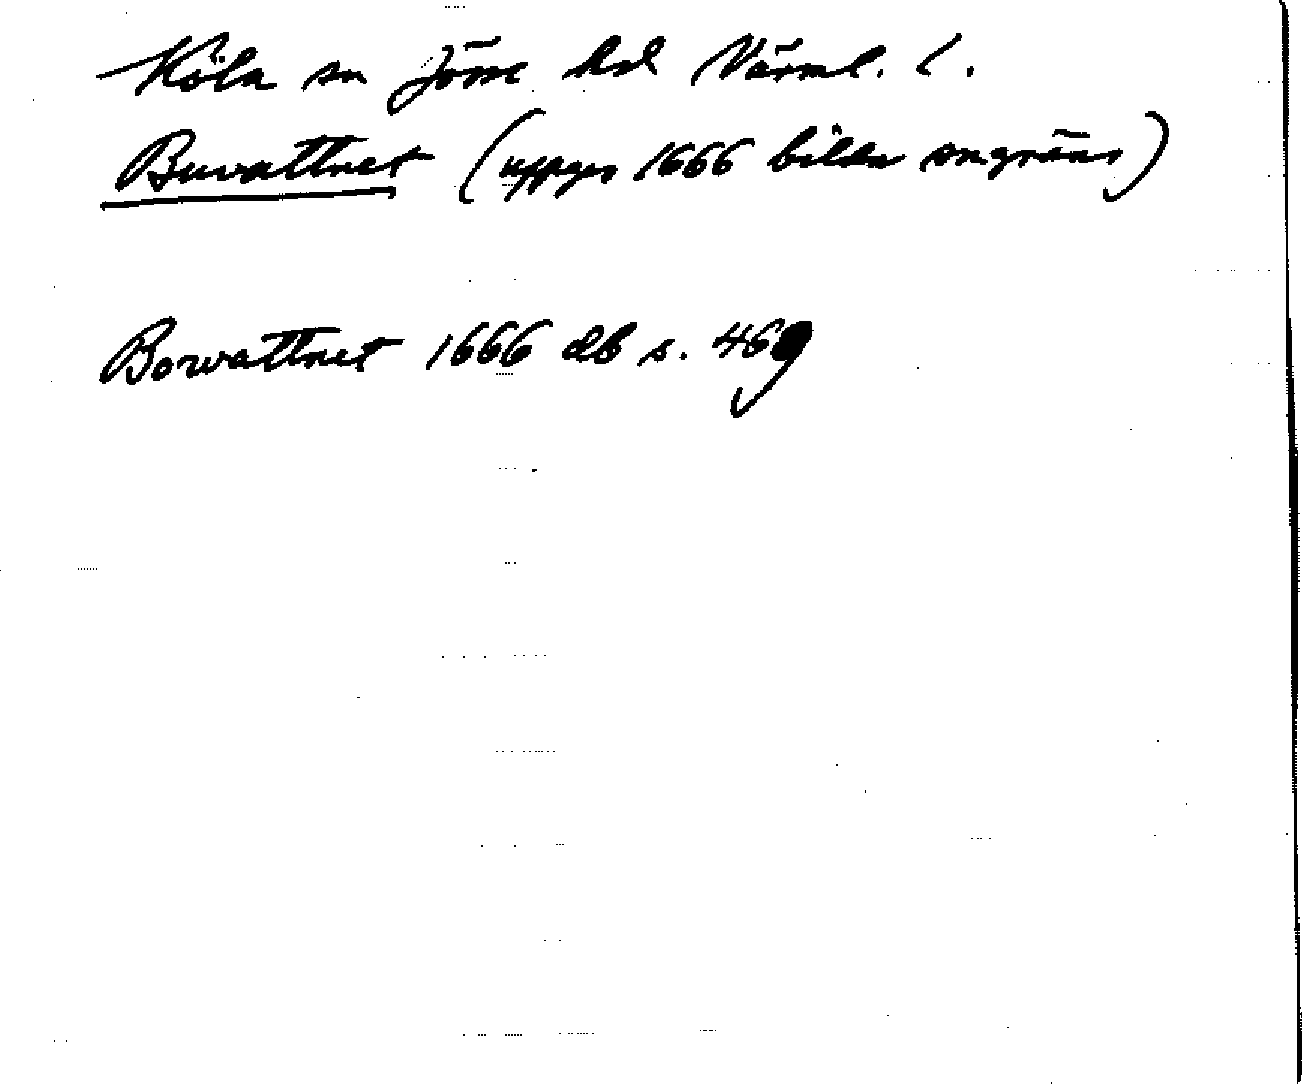 Köla sn Jösse hd Värml. l.
Buvattnet (uppges 1666 bilda sngräns)
Borvattnet 1666 db s. 469